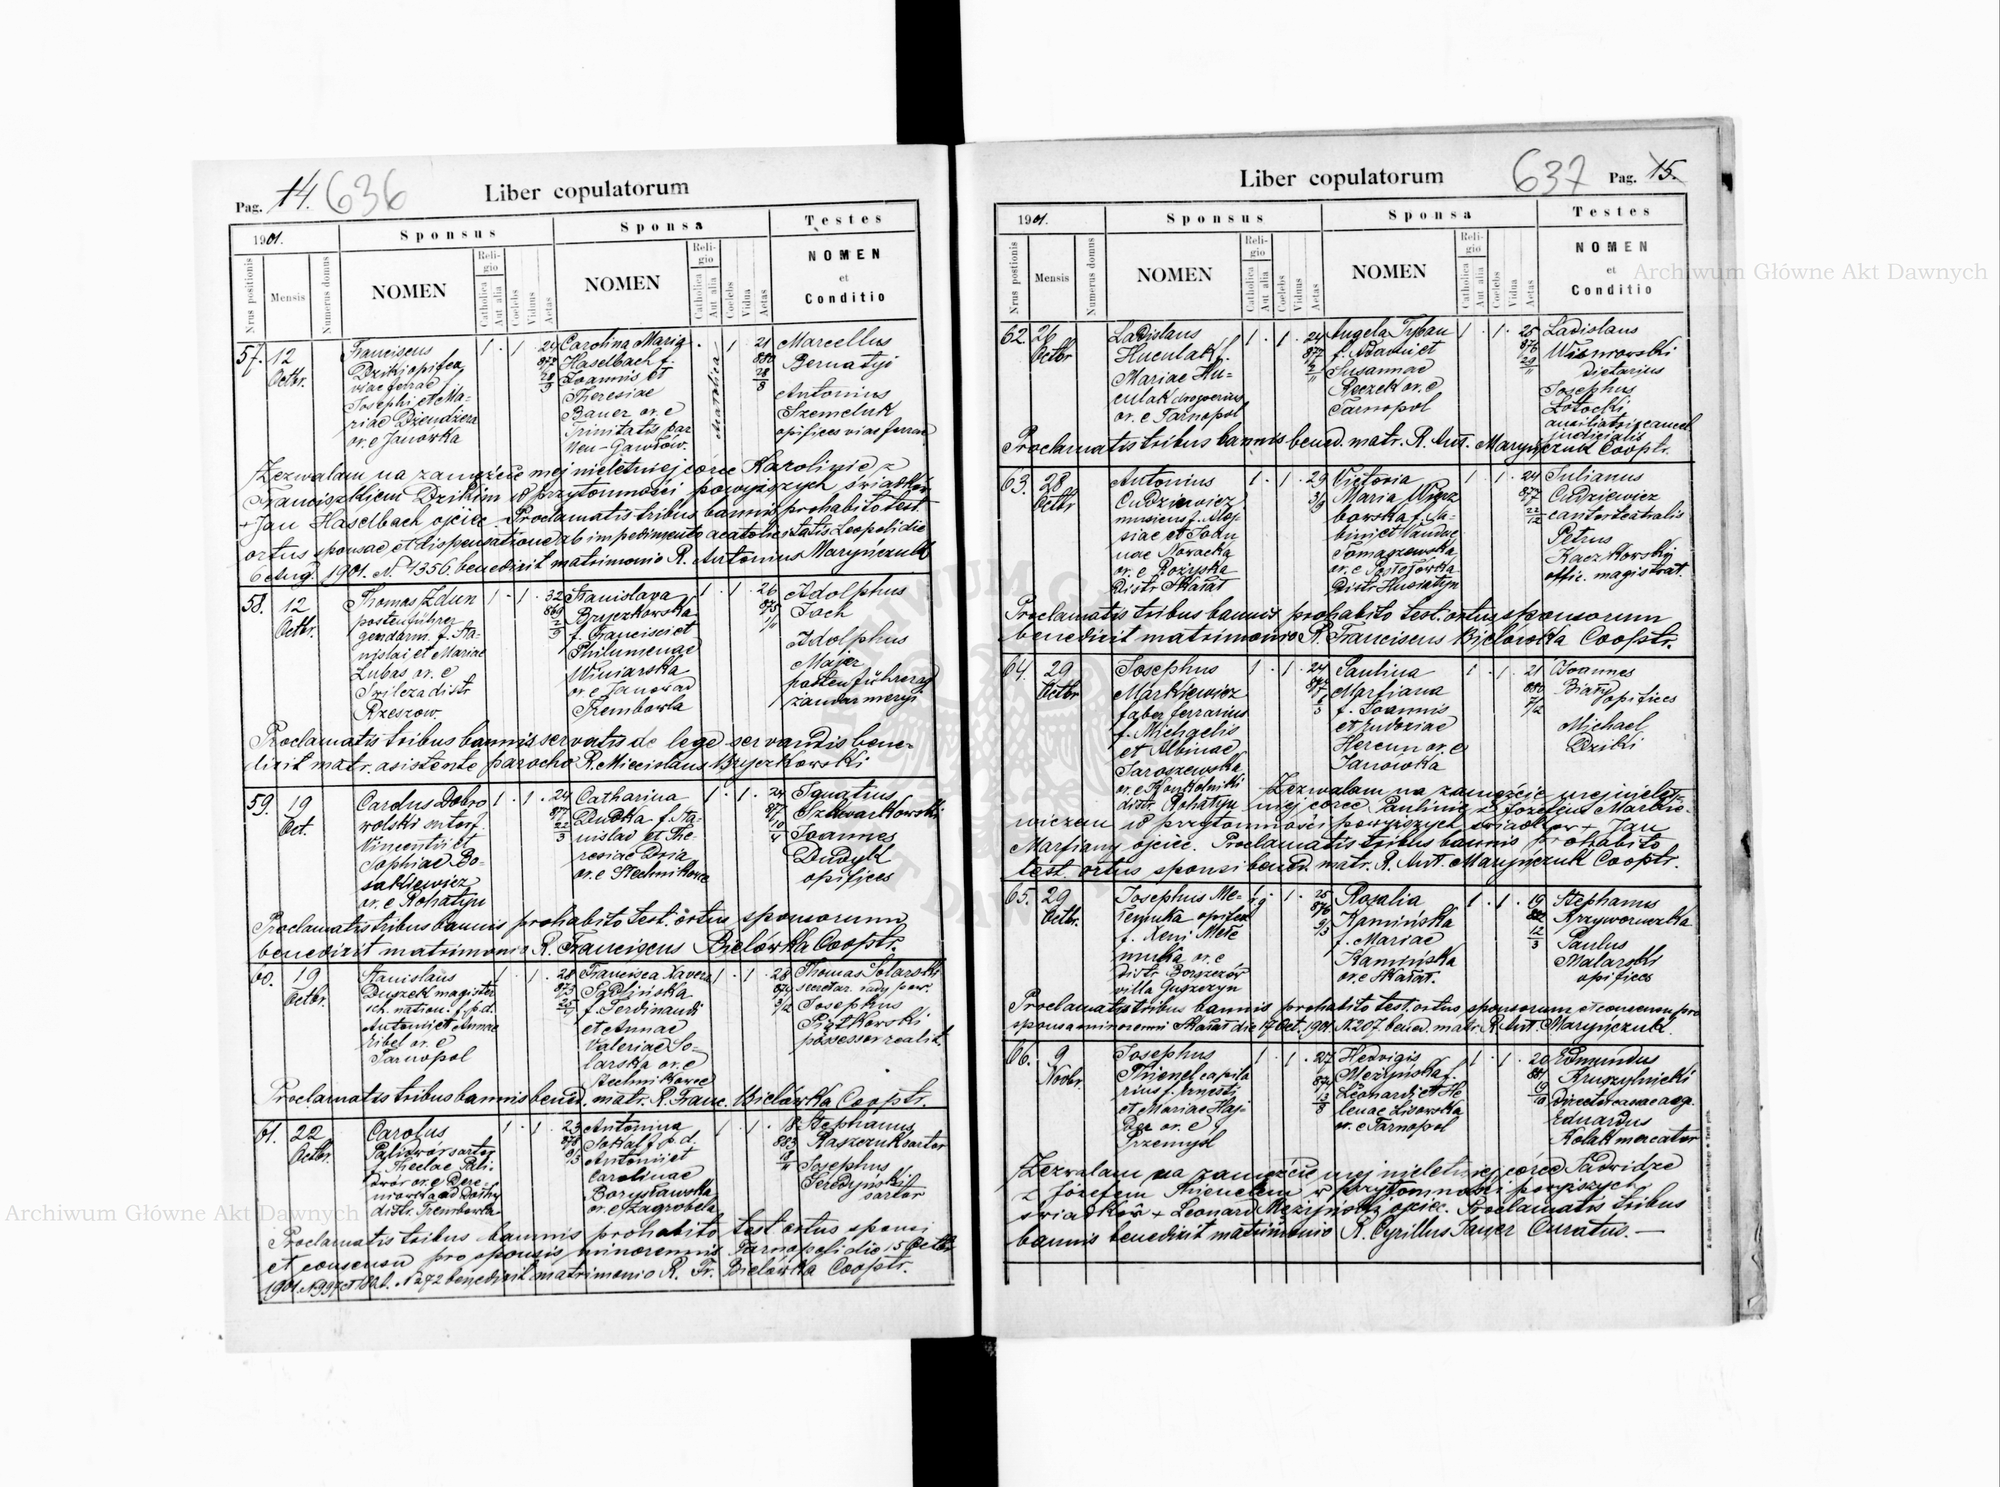 Pag. 14. 636 Liber copulatorum
1901.
Sponsus
Sponsa
Testes
Nrus positionis
Mensis
Numerus domus
NOMEN
Religio
Catholica
Aut alia
Coelebs
Viduus
Aetas
NOMEN
Religio
Catholica
Aut alia
Coelebs
Vidua
Aetas
NOMEN
et
Conditio
57.
12
Octbr.
Franciscus
Dziki opifex
viae ferrae
Josephi et Ma-
riae Dzendzera
or. e Janowka
1 . 1 .
24
877
Carolina Maria
Haselbach f.
Joannis et
Theresiae
Bauer or. e
Trinitatis par
acatholica
1
21
880
28
8
Marcellus
Antonius
Szemeluk
opifices viae ferrae
Zezwalam na zamęźcie mej nieletniej córce Karolinie z
Franciszkiem Dzikim w przytomności powyższych świadków
+ Jan Haselbach ojciec Proclamatis tribus bannis prohabito test.
ortus sponsae et dispensatione ab impedimento acatholicitatis Leopoli die
6 Aug. 1901. N. 4356. benedixit matrimonio R. Antonius Maryńczuk
58.
12
Octbr.
Thomas Zdun
postenführer
gendarm. f. Sta-
nislai et Mariae
Lubas or. e
distr
Rzeszow
1 . 1 .
32
869
Stanislava
Bryczkowska
f. Francisci et
Philumenae
Winiarska
or. e Janow ad
Trembowla
1 . 1 .
26
875
Adolphus
Joch
Adolphus
Majer
postenführerzy
żandarmeryi
Proclamatis tribus bannis servatis de lege servandis bene-
dixit matr. asistente parocho R. Miecislaus Bryczkowski
59.
19
Oct.
Carolus Dobro
wolski sutor f.
Vincentii et
Sophiae Bo-
sakiewicz
or. e Rohatyn
1 . 1 .
24
877
22
3
Catharina
Dudka f. Sta-
nislai et The-
resiae Dzia
or. e Stechnikowce
1 . 1 .
24
877
10
4
Ignatius
Szkwarkowski
Joannes
Dudyk
opifices
Proclamatis tribus bannis prohabito test. ortus sponsorum
benedixit matrimonio R. Franciscus Bielówka Cooptr.
60.
19
Octbr.
Stanislaus
Duszek magister
sch. nation. f. p. d.
Antoni et Annae
or. e
Tarnopol
1 . 1 .
28
873
25
Francisca Xavera
f. Ferdinandi
et Annae
Valeriae So-
larska or. e
Stechnikowce
1 . 1 .
28
Thomas Solarski
secretar. rady pow.
Josephus
Piątkowski
possessor realit.
Proclamatis tribus bannis bened. matr. R. Franc. Bielówka Cooptr.
61.
22
Octbr.
Carolus
Paliswór sartor
f. Theclae Pali-
swór or. e Dere-
niowka
distr. Trembowla
1 . 1 .
23
878
Antonina
Sokal f. p. d.
Antoni et
Carolinae
Borysławska
or. e Zagrobela
1 . 1 .
18
883
18
11
Stephanus
Raszczuk sartor
Josephus
Feredyński
sartor
Proclamatis tribus bannis prohabito test. ortus sponsi
et consensu pro sponsis minorennis Tarnopoli die 15 Octbr.
1901. benedixit matrimonio R. Fr. Bielówka Cooptr.
Liber copulatorum 637 Pag. 15.
1901.
Sponsus
Sponsa
Testes
Nrus postionis
Mensis
Numerus domus
NOMEN
Religio
Catholica
Aut alia
Coelebs
Viduus
Aetas
NOMEN
Religio
Catholica
Aut alia
Coelebs
Vidua
Aetas
NOMEN
et
Conditio
62.
26
Octbr
Ladislaus
Huculak f.
Mariae Hu-
culak
or. e Tarnopol
1 . 1 .
24
877
Angela Tyban
f. Adami et
Susannae
Reczek or. e
Tarnopol
1 . 1 .
25
876
29
11
Ladislaus
Wiśniowski
dietarius
Josephus
Zotocki
auxiliatrix cancel
judicialis
Proclamatis tribus bannis bened. matr. R. Ant. Maryńczuk Cooptr.
63.
28
Octbr
Antonius
Cudziewicz
musicus f. Aloj-
siae et Joan
nae Novacka
or. e Rożyska
distr Skałat
1 . 1 .
29
3/9
Victoria
Maria Wierz
bowska f. Sa-
bini et
Tomaszewska
or. e Postołówka
distr Husiatyn
1 . 1 .
24
877
22
12
Julianus
Cudziewicz
cantor teatralis
Petrus
Kaczkowskij
offic. magistrat.
Proclamatis tribus bannis prohabito test. ortus sponsorum
benedixit matrimonio R. Franciscus Bielówka Cooptr.
64.
29
Octbr
Josephus
Markiewicz
faber ferrarius
f. Michaelis
et Albinae
Jaroszewska
or. e Konkolniki
distr. Rohatyn
1 . 1 .
24
Paulina
Marfiana
f. Joannis
et Eudoxiae
Hercun or. e
Janowka
1 . 1 .
21
880
7/12
Joannes
Biały opifices
Michael
Dziki
Zezwalam na zamęźcie mej nielet-
niej córce Paulinie z Józefem Markie-
wiczem w przytomności powyższych świadków + Jan
Marfiany ojciec. Proclamatis tribus bannis prohabito
test. ortus sponsi bened. matr. R. Ant. Maryńczuk Cooptr.
65.
29
Octbr.
Josephus Me-
temuka opifex
f. Xeni Mete
muka or. e
distr Borszczów
villa Guszczyn
25
876
9/3
Rosalia
Kamińska
f. Mariae
Kamińska
or. e Skałat.
1 . 1 .
19
882
12
3
Stephanus
Krzyworuczka
Paulus
Malarski
opifices
Proclamatis tribus bannis prohabito test. ortus sponsorum et consensu pro
sponsa minorenni Skałat die 17 Oct. 1901. N. 207. bened. matr. R. Ant. Maryńczuk.
66.
9
Novbr.
Josephus
Thienel
f. Ernesti
et Mariae Haj-
or. e
Przemysl
1 . 1 .
27
874
13
8
Hedvigis
Mezyńska f.
Leonardi et He
lenae Lisowska
or. e Tarnopol
1 . 1 .
20
881
19
10
Edmundus
Kruszylnicki
Eduardus
Kolak mercator
Zezwalam na zamęźcie mej nieletniej córce Jadwidze
z Józefem Thienelem w przytomności powyższych
świadków + Leonard Mezyński ojciec. Proclamatis tribus
bannis benedixit matrimonio R. Cyrillus Jauer Curatus. —
Archiwum Główne Akt Dawnych
Archiwum Główne Akt Dawnych